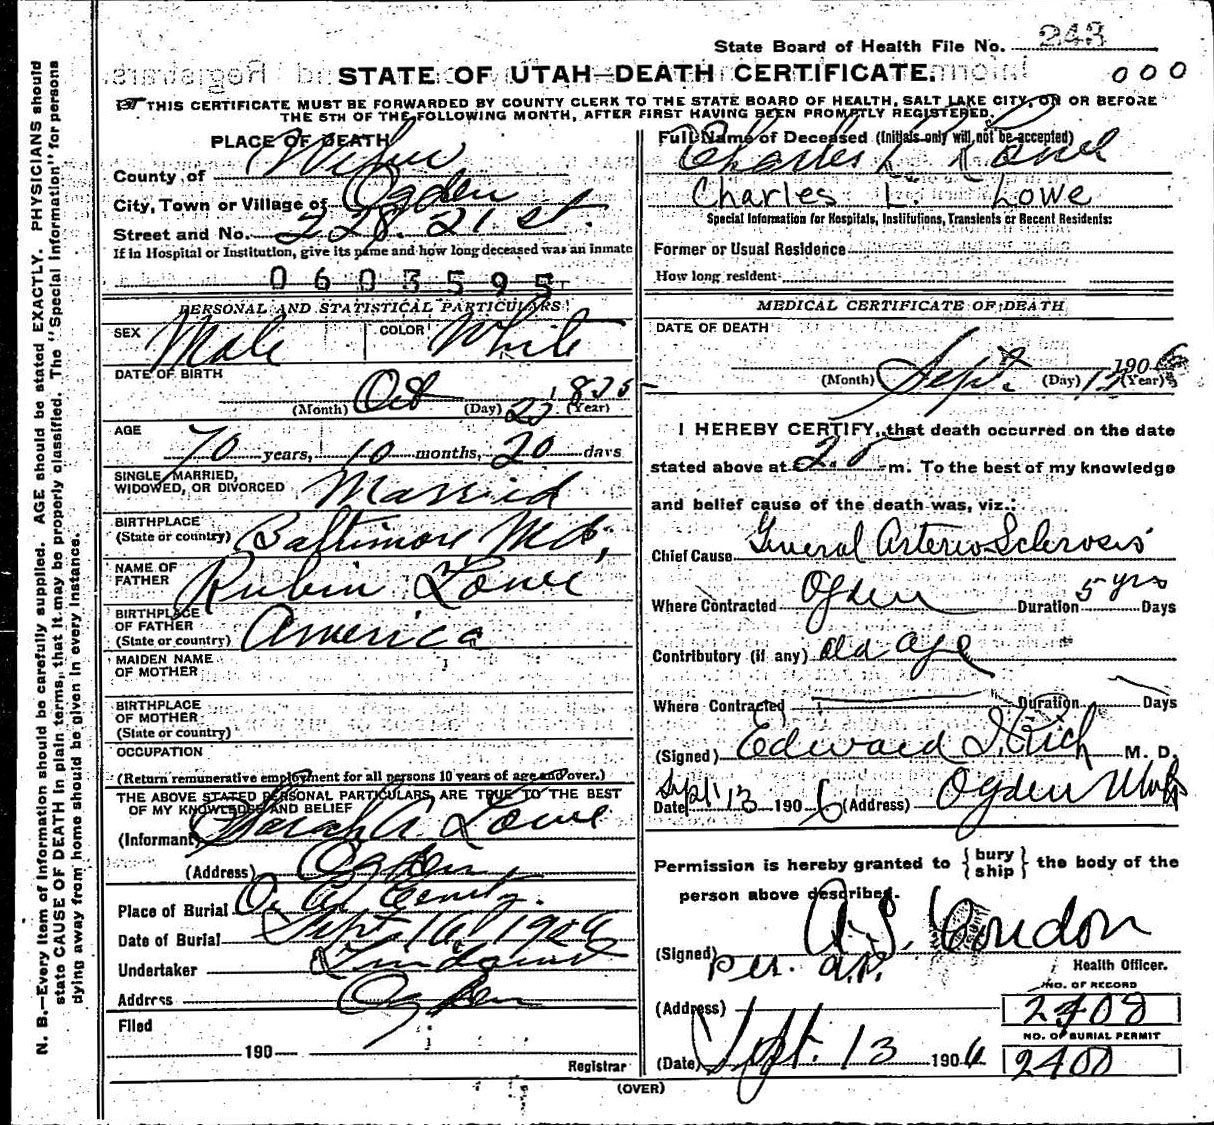 State Board of Health File No. 243
STATE OF UTAH—DEATH CERTIFICATE.
000
THIS CERTIFICATE MUST BE FORWARDED BY COUNTY CLERK TO THE STATE BOARD OF HEALTH, SALT LAKE CITY, ON OR BEFORE
THE 5TH OF THE FOLLOWING MONTH, AFTER FIRST HAVING BEEN PROMPTLY REGISTERED.
PLACE OF DEATH
County of Weber
City, Town or Village of Ogden
Street and No. 228. 21 st.
If in Hospital or Institution, give its name and how long deceased was an inmate
0603595
PERSONAL AND STATISTICAL PARTICULARS
SEX Male COLOR White
DATE OF BIRTH
(Month) Oct (Day) 23 (Year) 1835
AGE
70 years, 10 months, 20 days
SINGLE, MARRIED,
WIDOWED, OR DIVORCED Married
BIRTHPLACE
(State or country) Baltimore Md,
NAME OF
FATHER Rubin Lowe
BIRTHPLACE
OF FATHER
(State or country) America
MAIDEN NAME
OF MOTHER
BIRTHPLACE
OF MOTHER
(State or country)
OCCUPATION
(Return remunerative employment for all persons 10 years of age and over.)
THE ABOVE STATED PERSONAL PARTICULARS ARE TRUE TO THE BEST
OF MY KNOWLEDGE AND BELIEF
(Informant) Sarah A Lowe
(Address) Ogden
Place of Burial
Date of Burial Sept 16 1906
Undertaker Lindquist
Address Ogden
Filed
190
Registrar
Full Name of Deceased (Initials only will not be accepted)
Charles L Lowe
Charles L. Lowe
Special Information for Hospitals, Institutions, Transients or Recent Residents:
Former or Usual Residence
How long resident
MEDICAL CERTIFICATE OF DEATH
DATE OF DEATH
(Month) Sept. (Day) 12 1906 (Year)
I HEREBY CERTIFY, that death occurred on the date
stated above at m. To the best of my knowledge
and belief cause of the death was, viz.:
Chief Cause General Arterio Sclerosis
Where Contracted Ogden Duration 5 yrs Days
Contributory (if any) old age
Where Contracted Duration Days
(Signed) Edward I. Rich M. D.
Date Sept 13 1906 (Address) Ogden Utah
Permission is hereby granted to { bury ship } the body of the
person above described.
(Signed) A.S. Condon
per. Health Officer.
NO. OF RECORD
(Address) 2408
NO. OF BURIAL PERMIT
(Date) Sept. 13 1906 2400
(OVER)
N. B.—Every item of information should be carefully supplied. AGE should be stated EXACTLY. PHYSICIANS should
state CAUSE OF DEATH in plain terms, that it may be properly classified. The "Special Information" for persons
dying away from home should be given in every instance.